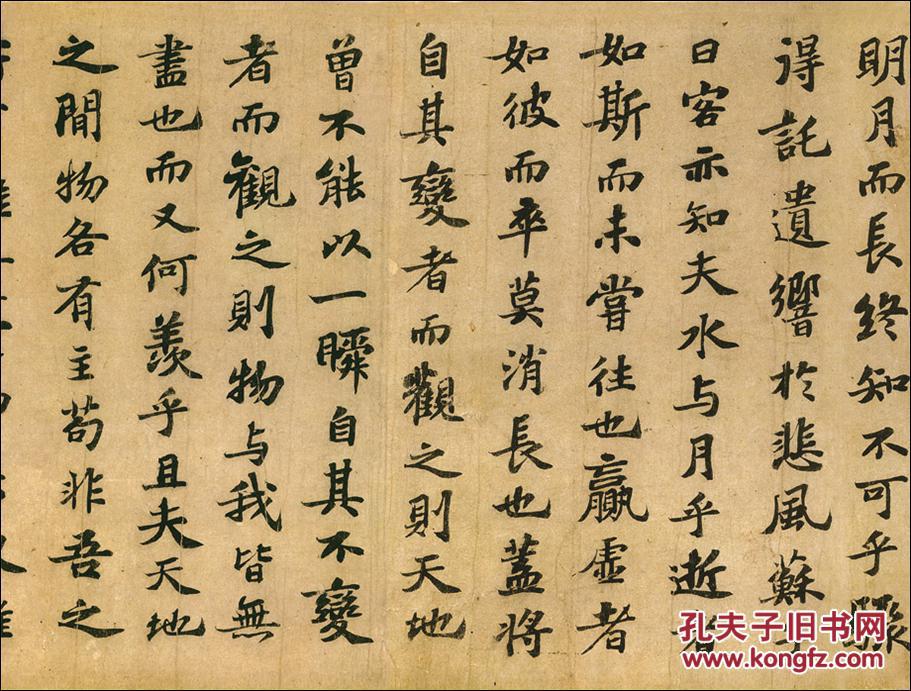 明月而長終知不可乎驟
得託遺響於悲風蘇子
曰客亦知夫水与月乎逝者
如斯而未嘗往也贏虛者
如彼而卒莫消長也蓋將
自其變者而觀之則天地
曾不能以一瞬自其不變
者而觀之則物与我皆無
盡也而又何羨乎且夫天地
之閒物各有主苟非吾之
孔夫子旧书网
www.kongfz.com